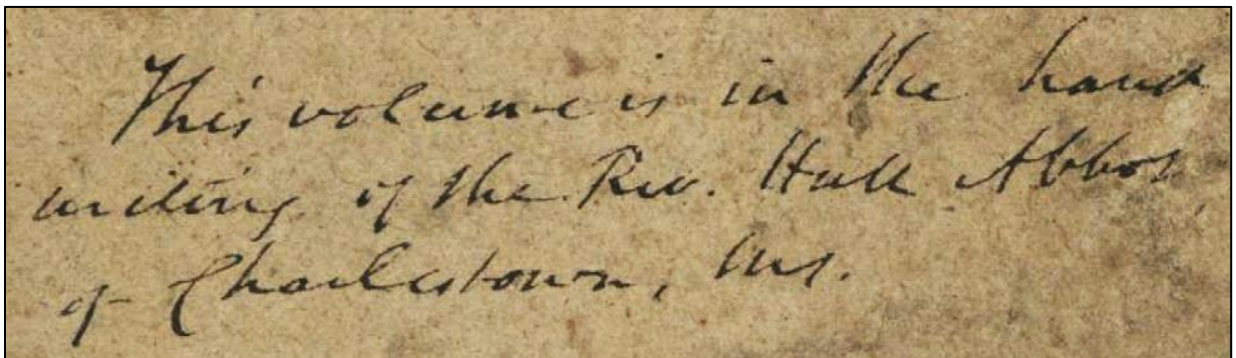 This volume is in the hand
writing of the Rev. Hull Abbot
of Charlestown, Ms.